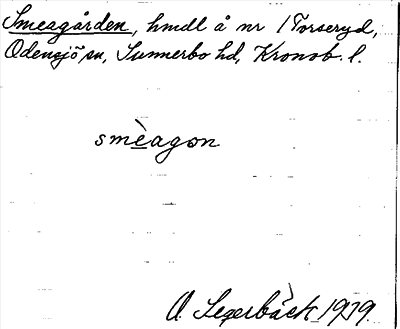 Smeagården, hmdl å nr 1 Torseryd,
Odensjö sn, Sunnerbo hd, Kronob. l.
smèagon
A. Segerbäck 1979.